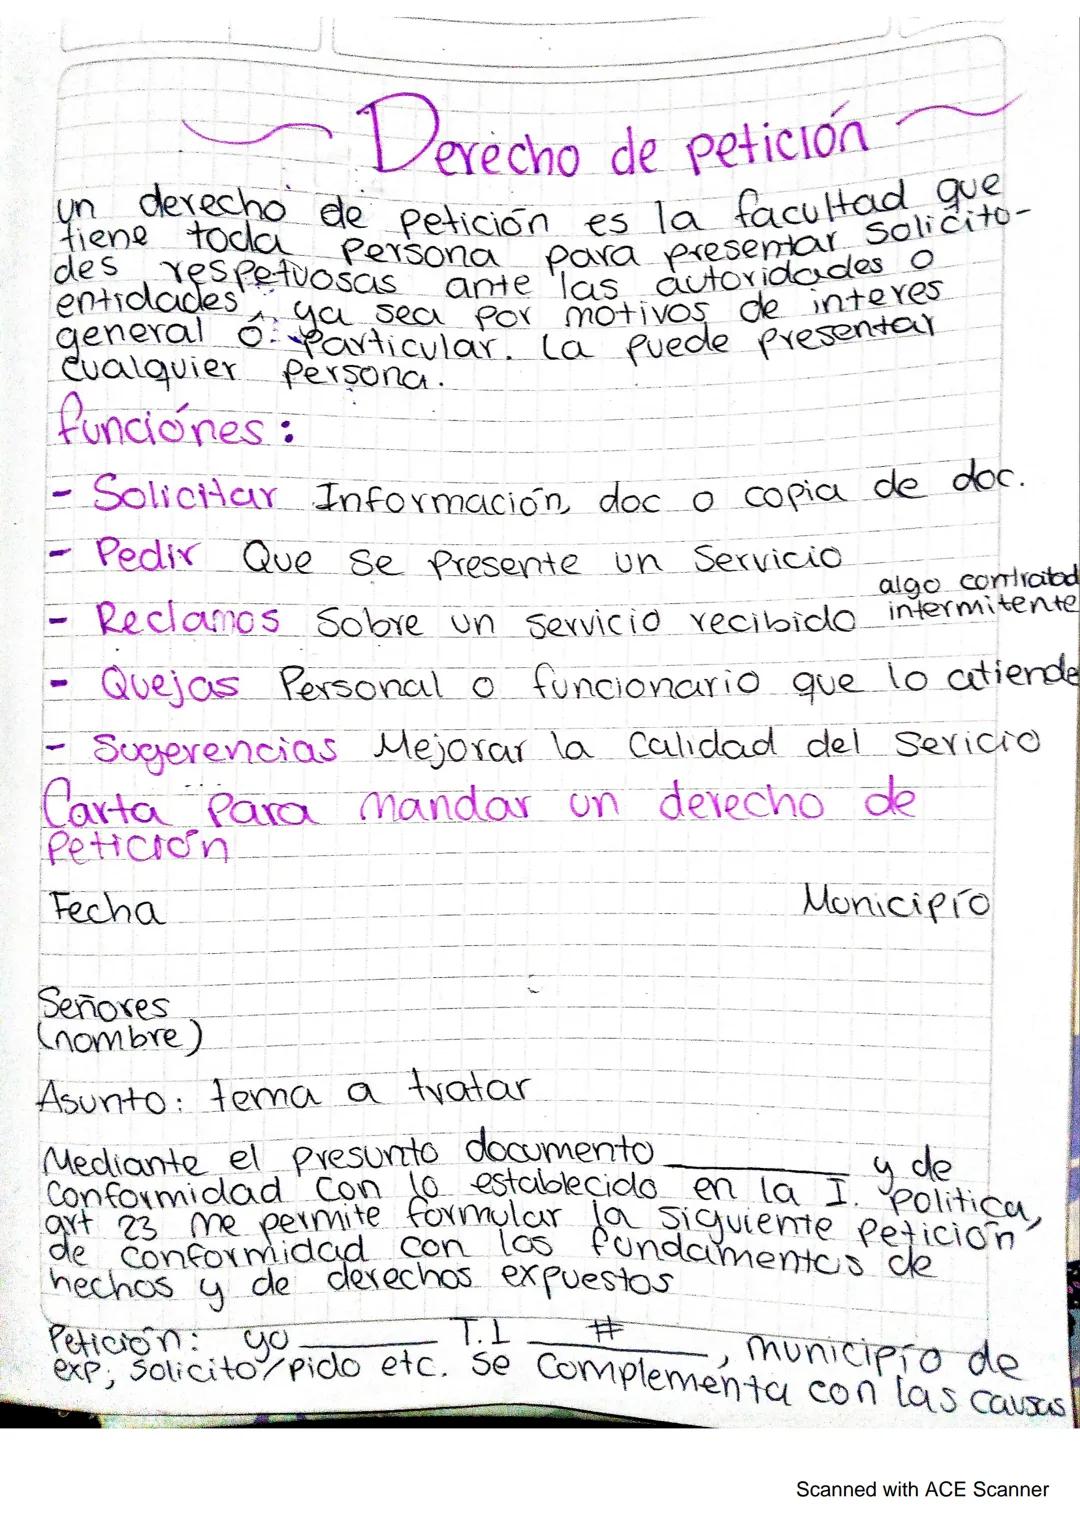 Derecho de petición
un derecho de petición es la facultad que
tiene toda persona para presentar solicito-
des respetuosas ante las autoridades o
entidades, ya sea por motivos de interes
general ó particular. La puede presentar
cualquier persona.
funciónes:
- Solicitar Información, doc o copia de doc.
- Pedir Que se presente un Servicio
algo contratad
- Reclamos Sobre un servicio recibido intermitente
- Quejas Personal o funcionario que lo atiende
- Sugerencias Mejorar la Calidad del Sericio
Carta Para mandar un derecho de
Petición
Fecha Municipío
Señores
(nombre)
Asunto: tema a tratar
Mediante el presunto documento ________ y de
conformidad con lo establecido en la I. Politica,
art 23 me permite formular la siguiente petición
de conformidad con los fundamentos de
hechos y de derechos expuestos
Petición: yo ________ T.I ___#___, municipío de
exp; Solicito/pido etc. se complementa con las causas
Scanned with ACE Scanner